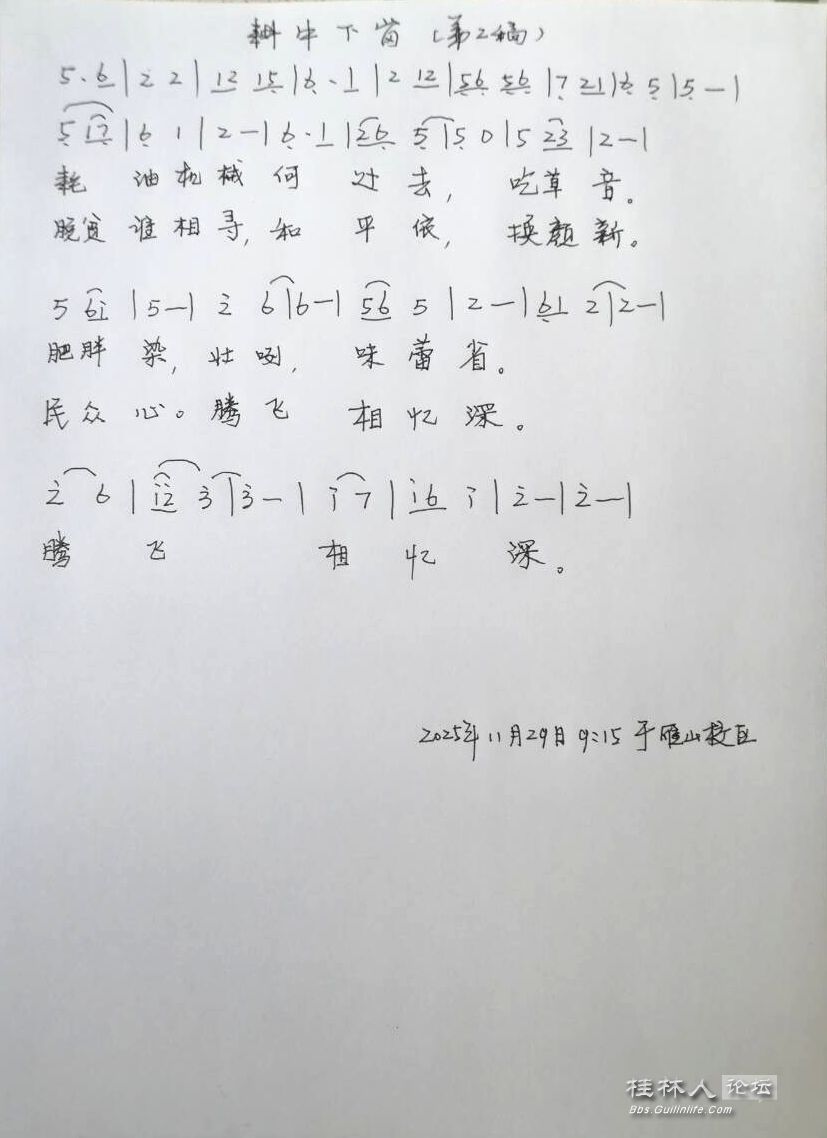 耕牛下岗(第2稿)
5·6|2 2|12 15|6·1|2 12|56 56|7 21|6 5|5—|
5 17|6 1|2—|6·1|26 5|5 0|5 23|2—|
耗 油机械何 过去, 吃草音。
脱贫谁相寻,和 平依, 换颜新。
5 6i|5—|2 6|6—|56 5|2—|61 2|2—|
肥胖染,壮咧, 味蕾省。
民众心。腾飞 相忆深。
2 6|i2 3|3—|i 7|i6 i|2—|2—|
腾 飞 相 忆 深。
2025年11月29日9:15于雁山校区
桂林人论坛
Bbs.Guilinlife.Com